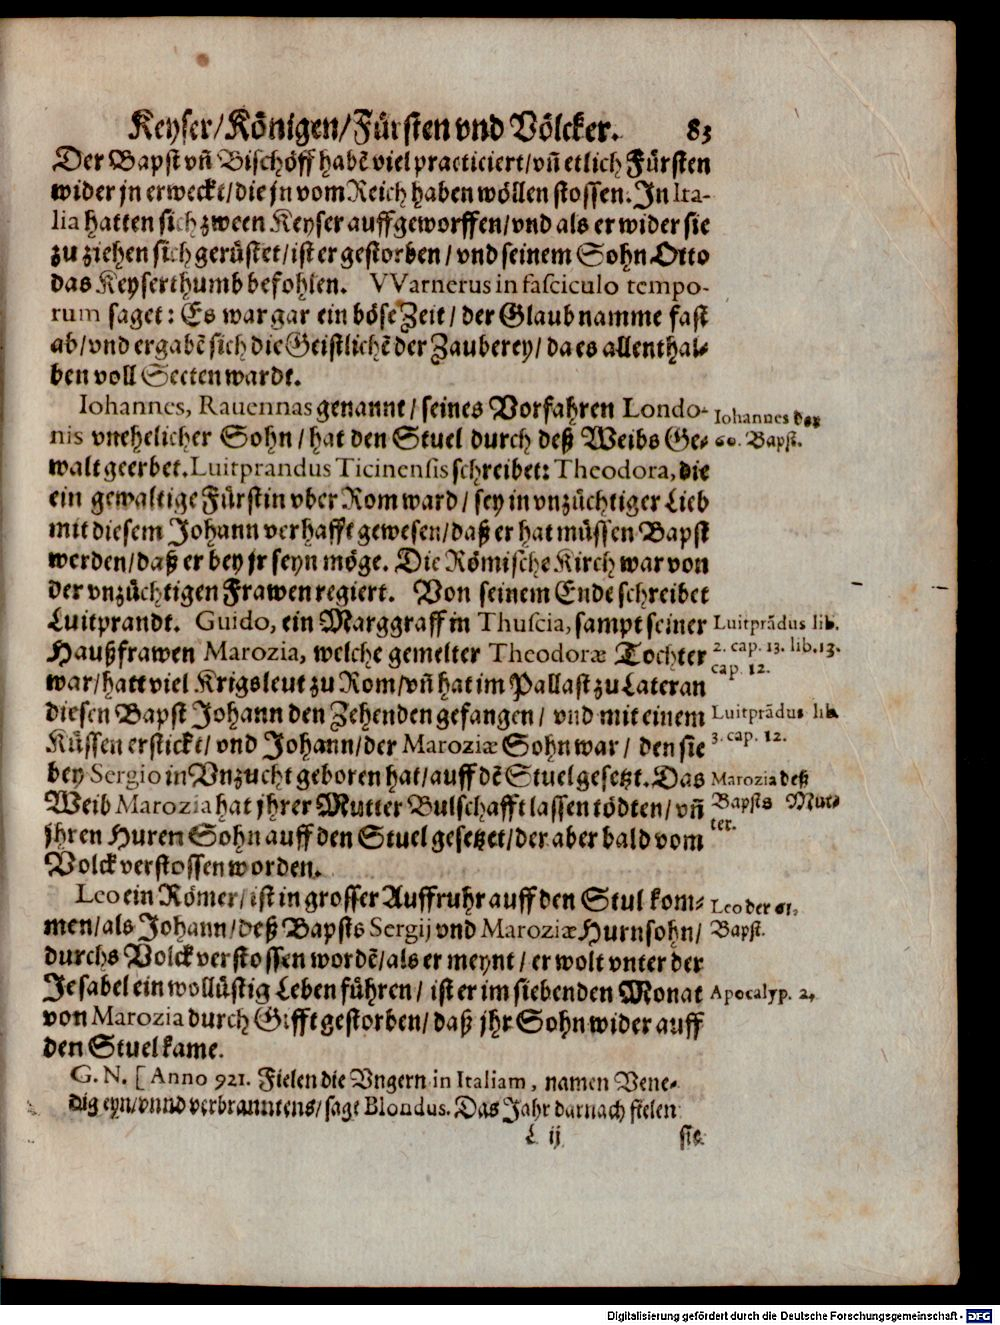 Keyser/Königen/Fürsten vnd Völcker. 83
Der Bapst vñ Bischöff habẽ viel practiciert/vñ etlich Fürsten
wider jn erweckt/die jn vom Reich haben wöllen stossen. In Ita-
lia hatten sich zween Keyser auffgeworffen/vnd als er wider sie
zu ziehen sich gerüstet/ist er gestorben/vnd seinem Sohn Otto
das Keyserthumb befohlen. VVarnerus in fasciculo tempo-
rum saget: Es war gar ein böse Zeit/der Glaub namme fast
ab/vnd ergabẽ sich die Geistlichẽ der Zauberey/da es allenthal-
ben voll Secten wardt.
Iohannes, Rauennas genannt/seines Vorfahren Londo- Iohannes der
nis vnehelicher Sohn/hat den Stuel durch deß Weibs Ge- 60. Bapst.
walt geerbet. Luitprandus Ticinensis schreibet: Theodora, die
ein gewaltige Fürstin vber Rom ward/sey in vnzüchtiger Lieb
mit diesem Johann verhafft gewesen/daß er hat müssen Bapst
werden/daß er bey jr seyn möge. Die Römische Kirch war von
der vnzüchtigen Frawen regiert. Von seinem Ende schreibet
Luitprandt. Guido, ein Marggraff in Thuscia, sampt seiner Luitprãdus lib.
Haußfrawen Marozia, welche gemelter Theodoræ Tochter 2. cap. 13. lib. 13.
war/hatt viel Krigsleut zu Rom/vñ hat im Pallast zu Lateran cap. 12.
diesen Bapst Johann den Zehenden gefangen/vnd mit einem Luitprãdus lib.
Küssen erstickt/vnd Johann/der Maroziæ Sohn war/den sie 3. cap. 12.
bey Sergio in Vnzucht geboren hat/auff dẽ Stuel gesetzt. Das Marozia deß
Weib Marozia hat jhrer Mutter Bulschafft lassen tödten/vñ Bapsts Mut-
jhren Huren Sohn auff den Stuel gesetzet/der aber bald vom ter.
Volck verstossen worden.
Leo ein Römer/ist in grosser Auffruhr auff den Stul kom- Leo der 61.
men/als Johann/deß Bapsts Sergij vnd Maroziæ Hurnsohn/ Bapst.
durchs Volck verstossen wordẽ/als er meynt/er wolt vnter der
Jesabel ein wollüstig Leben führen/ist er im siebenden Monat Apocalyp. 2.
von Marozia durch Gifft gestorben/daß jhr Sohn wider auff
den Stuel kame.
G. N. [Anno 921. Fielen die Vngern in Italiam, namen Vene-
dig eyn/vnnd verbranntens/sagt Blondus. Das Jahr darnach fielen
L ij sie
Digitalisierung gefördert durch die Deutsche Forschungsgemeinschaft - DFG